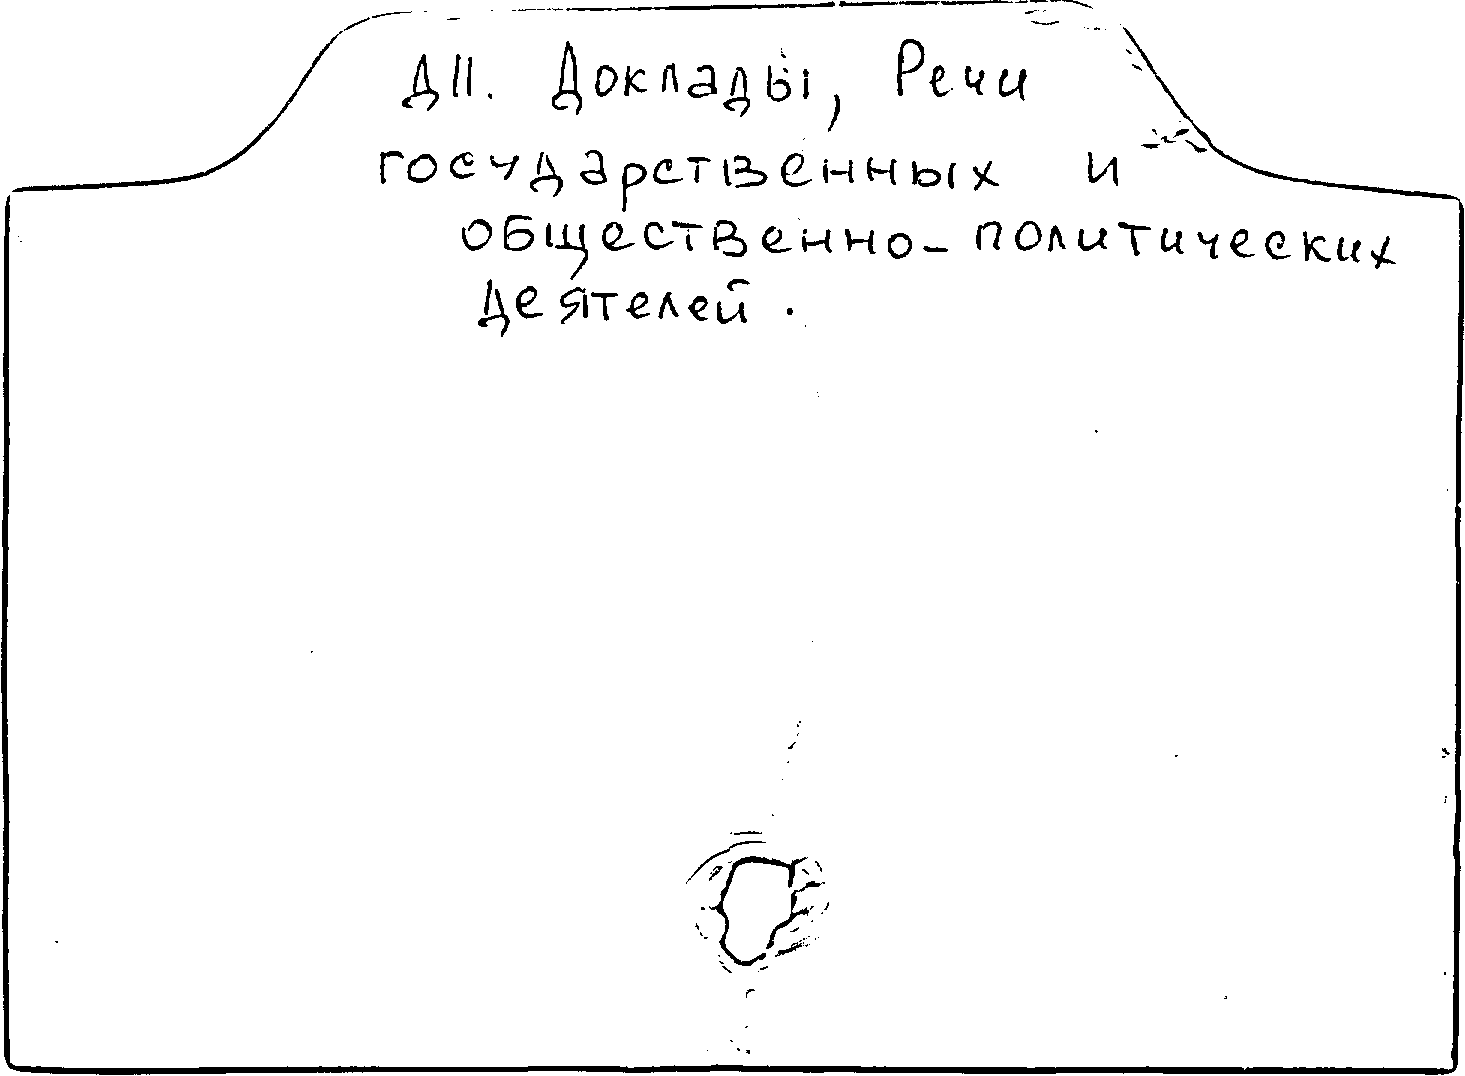 Д11. Доклады, Речи
государственных и
общественно-политических
деятелей.